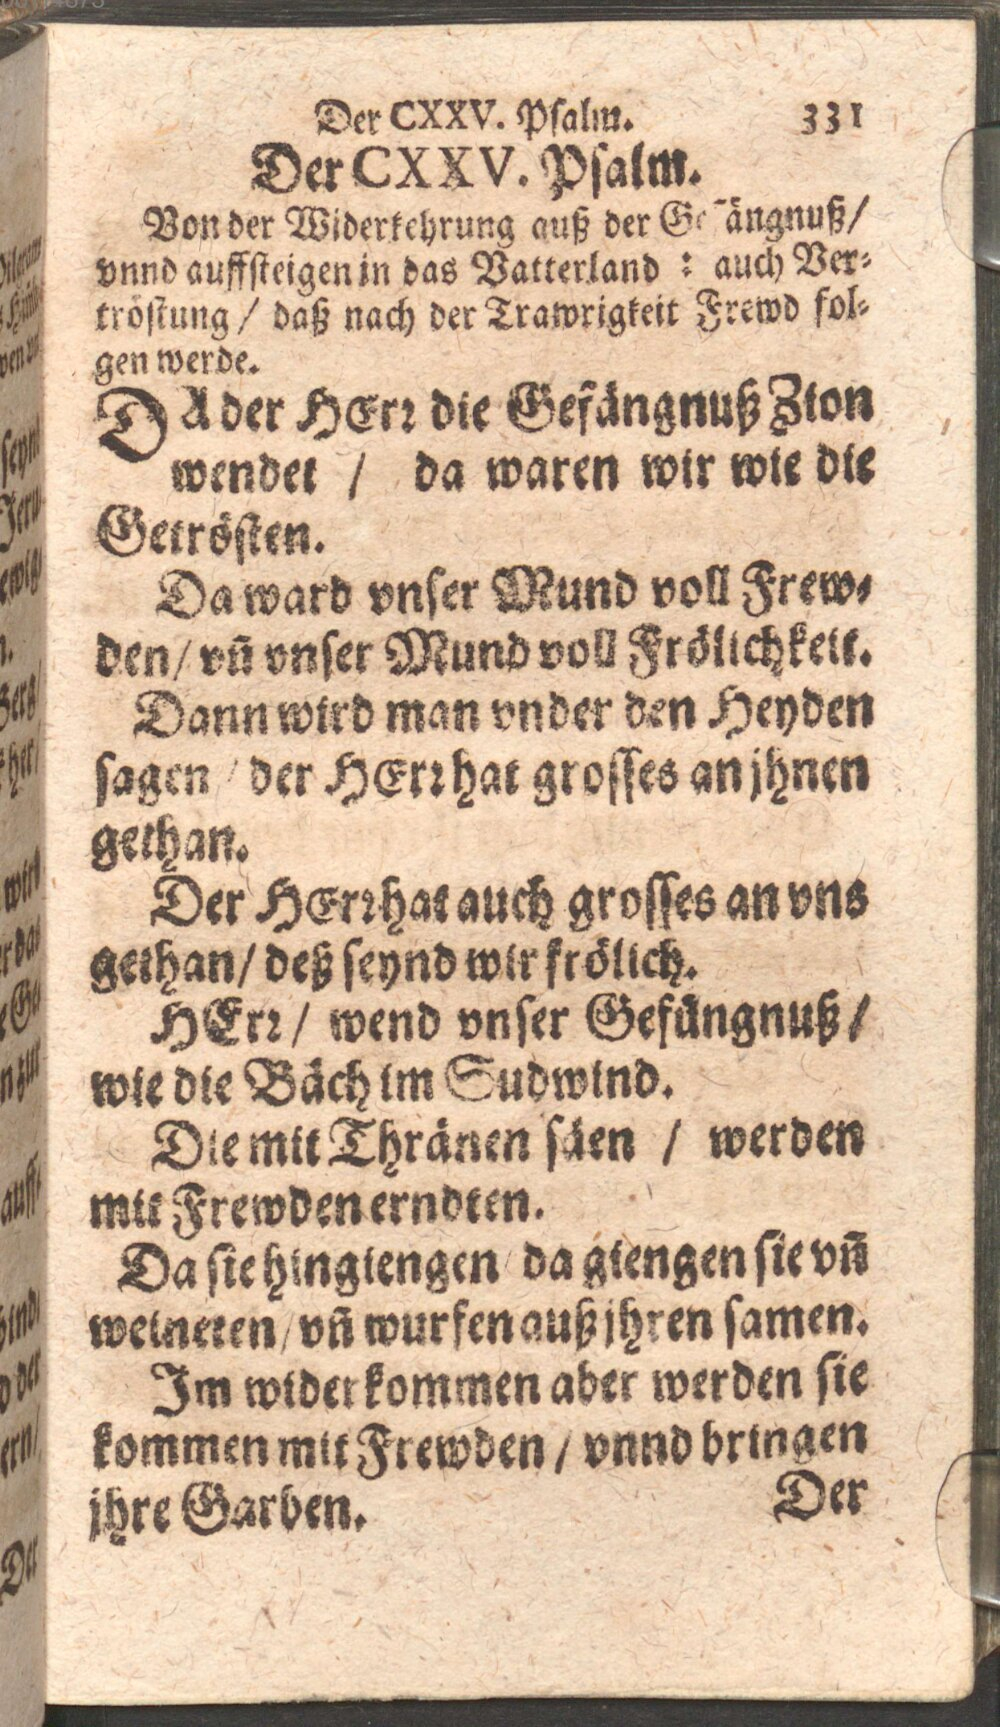 Der CXXV. Psalm. 331
Der CXXV. Psalm.
Von der Widerkehrung auß der Gefängnuß/
vnnd auffsteigen in das Vatterland : auch Ver-
tröstung / daß nach der Trawrigkeit Frewd fol-
gen werde.
DA der HErr die Gefängnuß Zion
wendet / da waren wir wie die
Getrösten.
Da ward vnser Mund voll Frew-
den/ vñ vnser Mund voll Frölichkeit.
Dann wird man vnder den Heyden
sagen / der HErr hat grosses an jhnen
gethan.
Der HErr hat auch grosses an vns
gethan/ deß seynd wir frölich.
HErr/ wend vnser Gefängnuß/
wie die Bäch im Sudwind.
Die mit Thränen säen / werden
mit Frewden erndten.
Da sie hingiengen/ da giengen sie vñ
weineten/ vñ wurfen auß jhren samen.
Im widerkommen aber werden sie
kommen mit Frewden / vnnd bringen
jhre Garben. Der